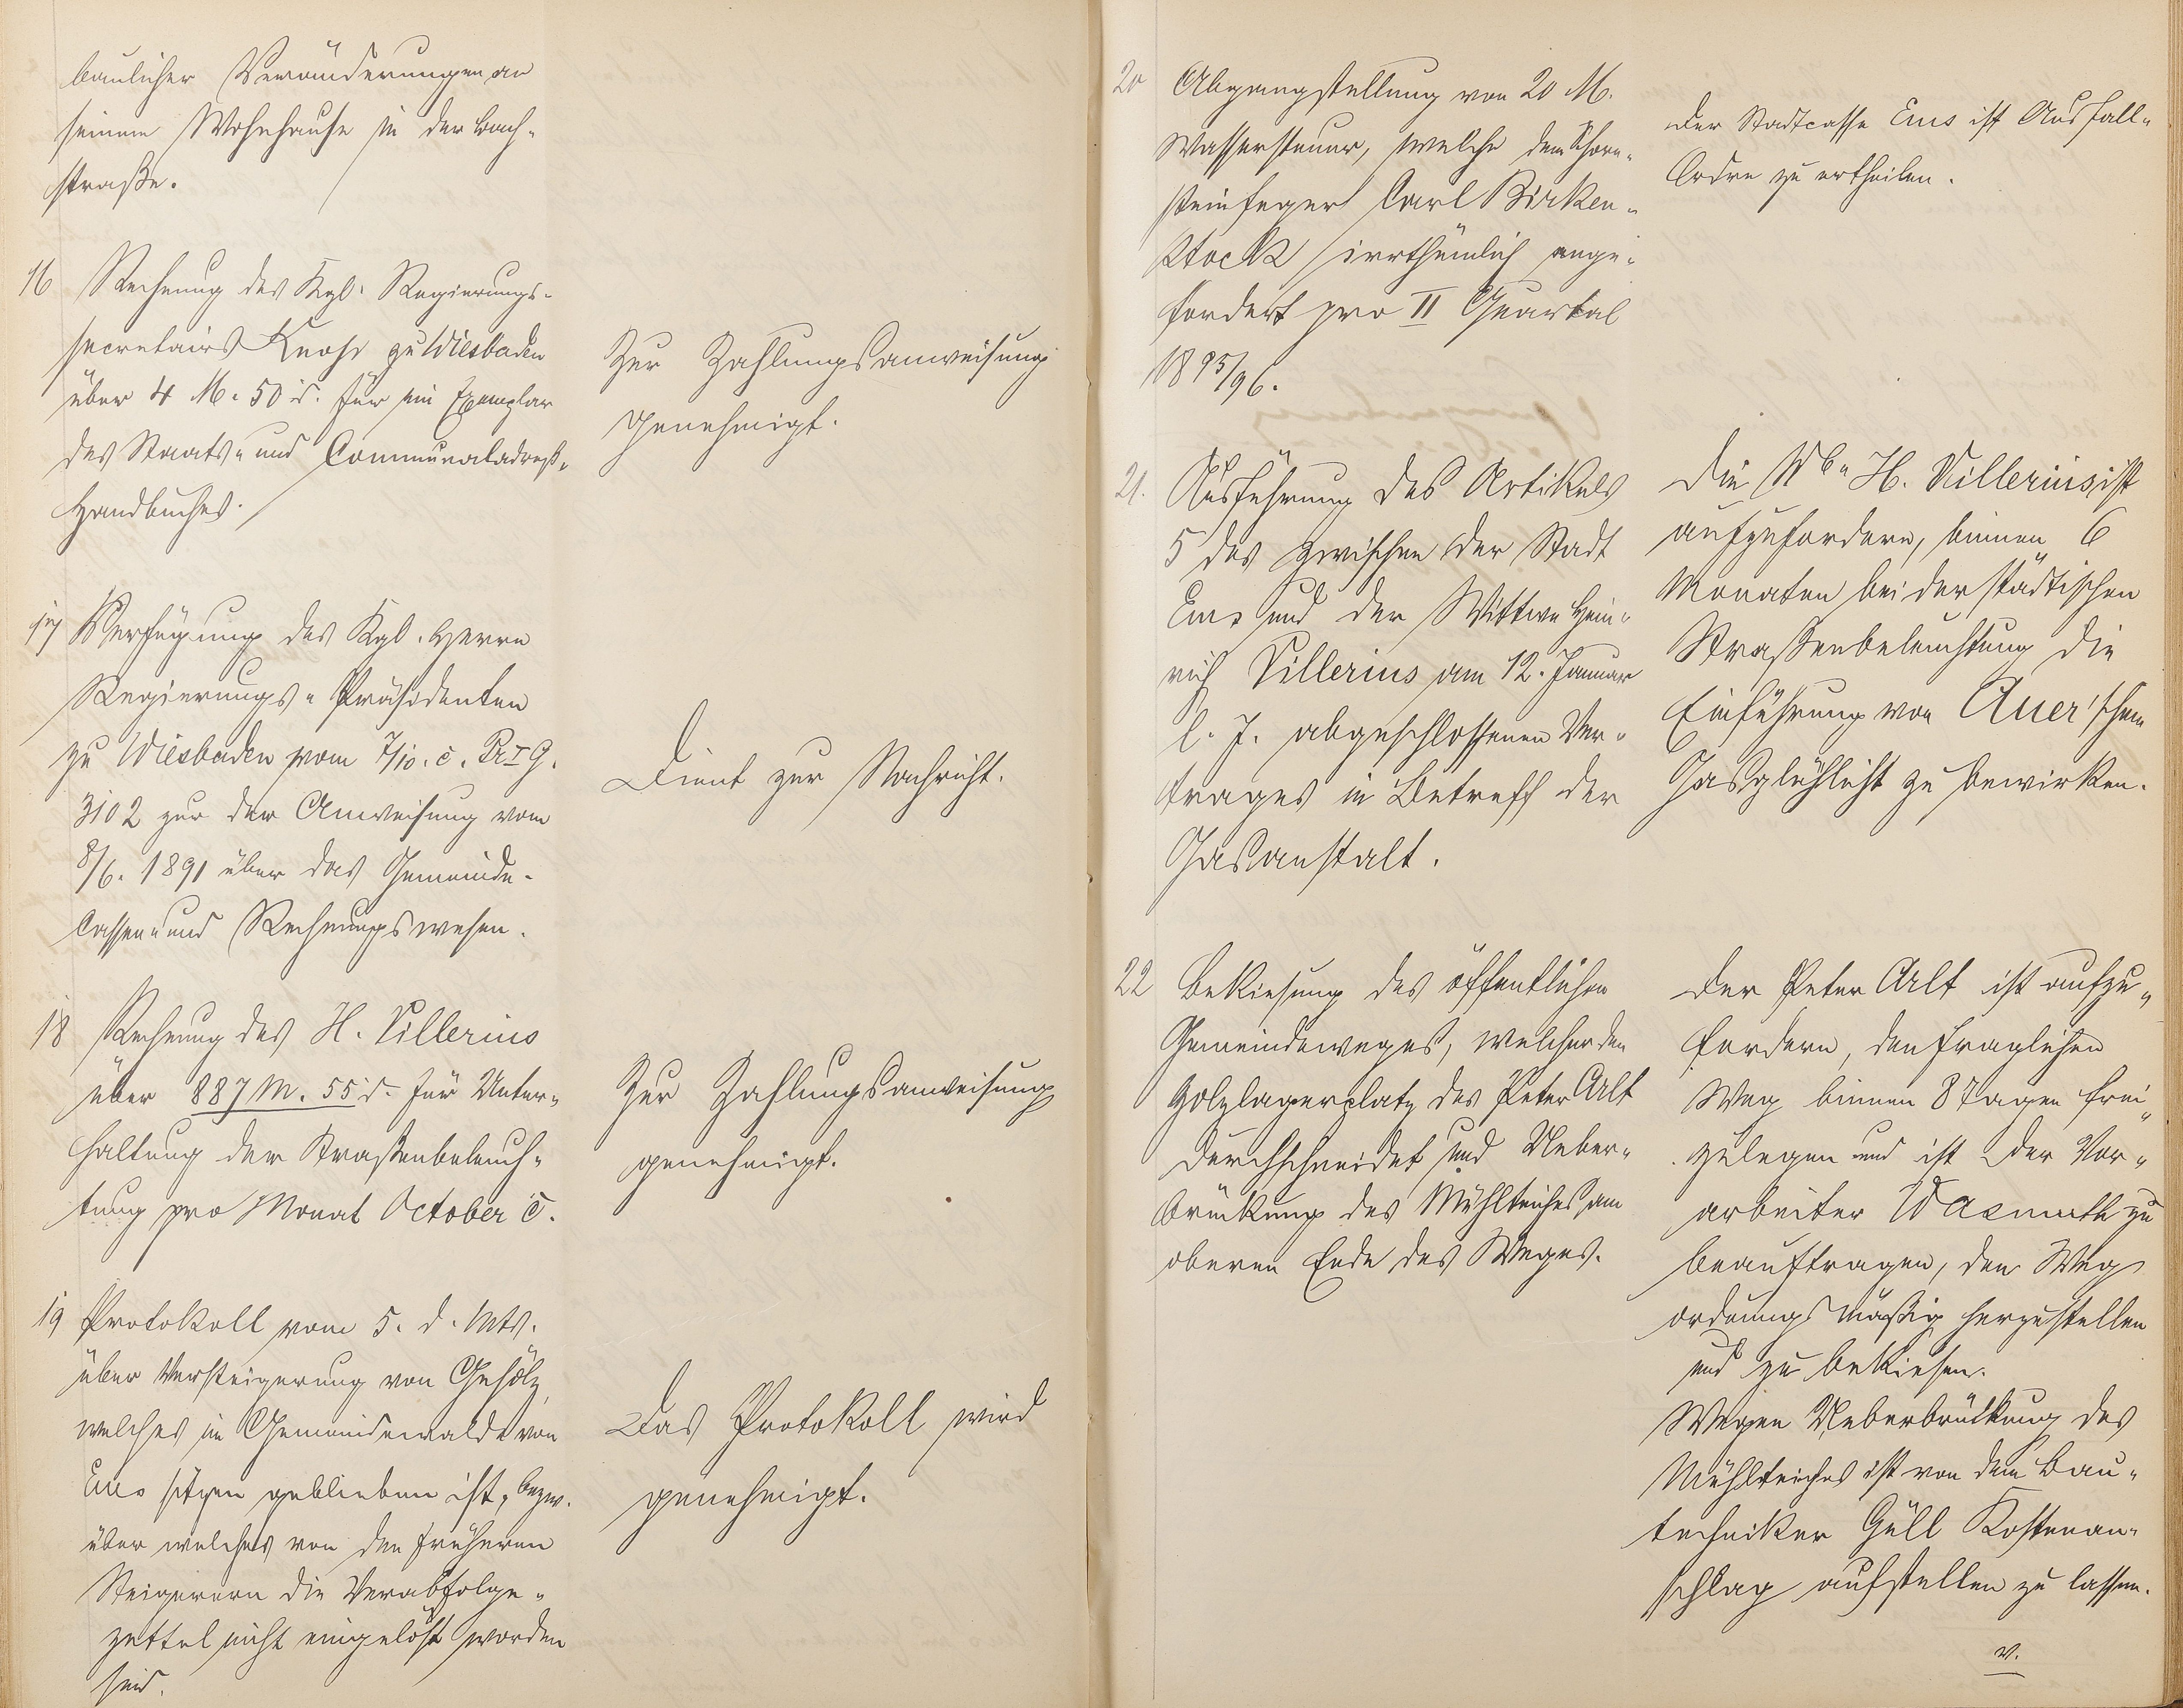 baulicher Veränderungen an
seinem Wohnhause in der Bach-
straße.
16 Rechnung des Kgl. Regierungs-
secretairs Knohr zu Wiesbaden
über 4 M. 50 d. für ein Exemplar
des Staats- und Communaladreß-
handbuches.
Zur Zahlungsanweisung
genehmigt.
17 Verfügung des Kgl. Herrn
Regierungs-Präsidenten
zu Wiesbaden vom 7/10. c. Pr I G.
3102 zur der Anweisung vom
8/6. 1891 über das Gemeinde-
Cassen- und Rechnungswesen.
Dient zur Nachricht.
18 Rechnung des H. Villerius
über 887 M. 55 d. für Unter-
haltung der Straßenbeleuch-
tung pro Monat October c.
Zur Zahlungsanweisung
genehmigt.
19 Protokoll vom 5. d. Mts.
über Versteigerung von Gehölz,
welches im Gemeindewalde von
Ems sitzen geblieben ist, bezw.
über welches von den früheren
Steigerern die Verabfolge-
zettel nicht eingelöst worden
sind.
Das Protokoll wird
genehmigt.
20 Abgangstellung von 20 M.
Wassersteuer, welche dem Schorn-
steinfeger Carl Birken-
stock irrthümlich ange-
fordert pro II Quartal
1895/96.
Der Stadtcasse Ems ist Ausfall-
Ordre zu ertheilen.
21. Ausführung des Artikels
5 des zwischen der Stadt
Ems und der Wittwe Hein-
rich Villerius am 12. Januar
l. J. abgeschlossenen Ver-
trages in Betreff der
Gasanstalt.
Die Wb. H. Villerius ist
aufzufordern, binnen 6
Monaten bei der städtischen
Straßenbeleuchtung die
Einführung von Auer'schem
Gasglühlicht zu bewirken.
22 Bekiesung des öffentlichen
Gemeindeweges, welcher den
Holzlagerplatz des Peter Alt
durchschneidet und Ueber-
brückung des Mühlteiches am
oberen Ende des Weges.
Der Peter Alt ist aufzu-
fordern, den fraglichen
Weg binnen 8 Tagen frei-
zulegen und ist der Vor-
arbeiter Wasmuth zu
beauftragen, den Weg
ordnungsmäßig herzustellen
und zu bekiesen.
Wegen Ueberbrückung des
Mühlteiches ist von dem Bau-
techniker Güll Kostenan-
schlag aufstellen zu lassen.
v.